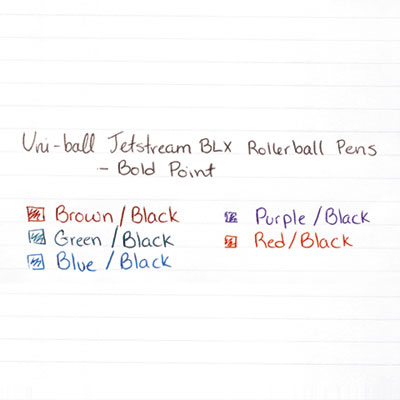 Uni-ball Jetstream BLX Rollerball Pens
- Bold Point
Brown/Black
Green/Black
Blue/Black
Purple/Black
Red/Black